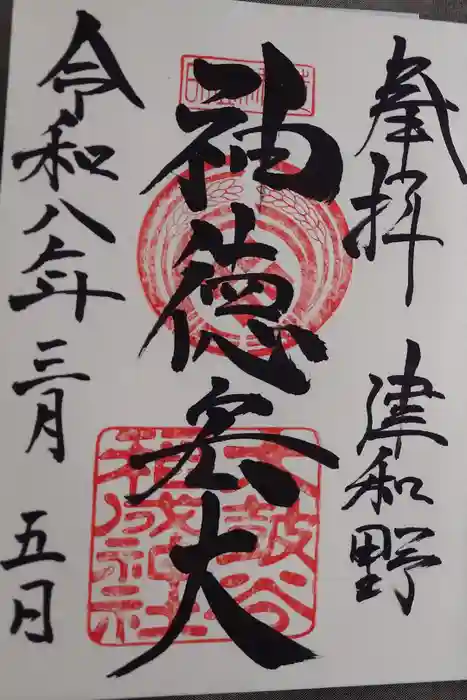 奉拝 津和野
神徳宏大
太皷谷
稲成神社
令和八年三月 五日